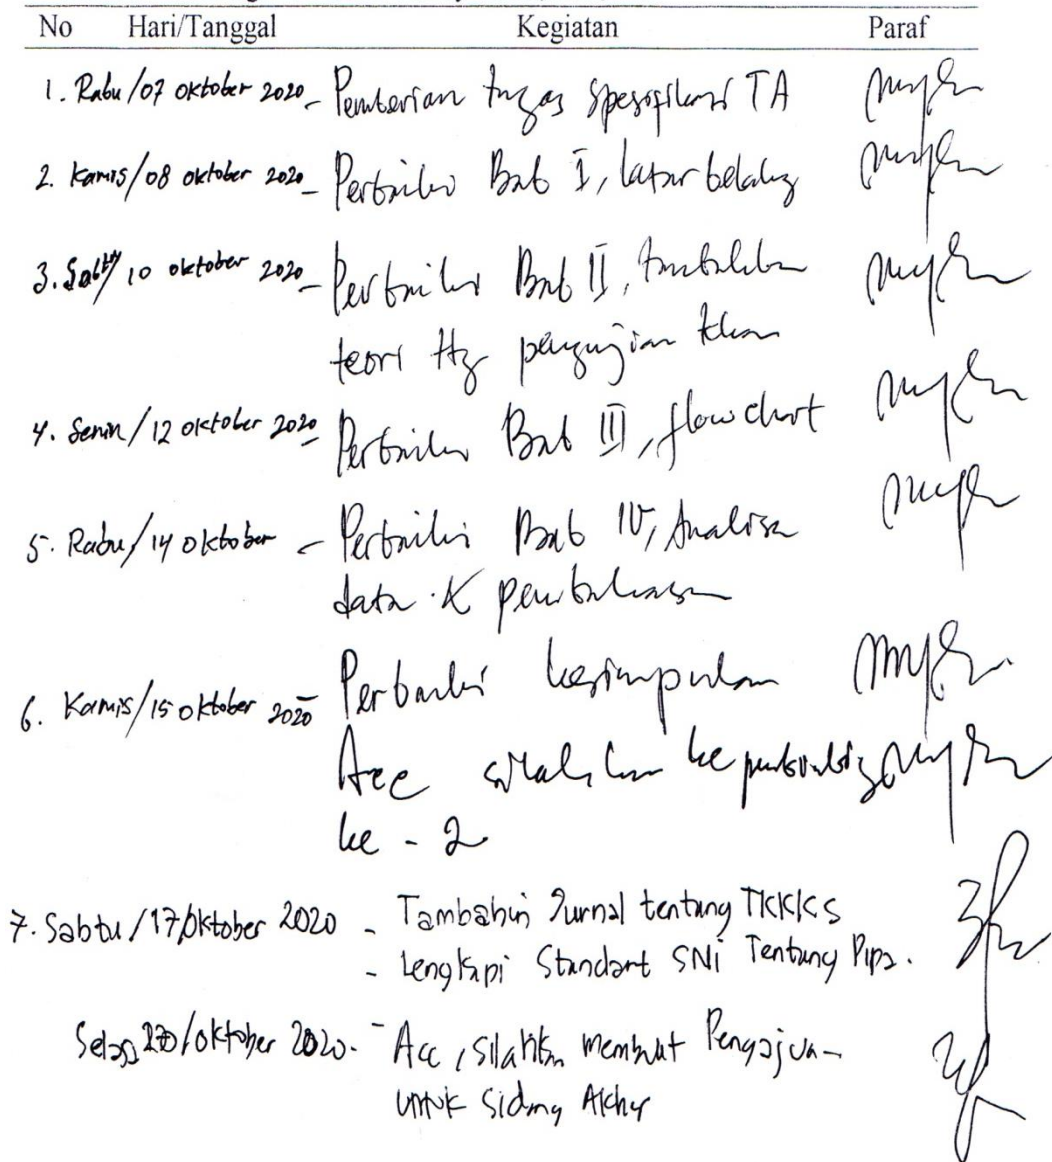 No Hari/Tanggal Kegiatan Paraf
1. Rabu/07 oktober 2020 - Pemberian tugas spesifikasi TA
2. Kamis/08 oktober 2020 - Perbaiki Bab I, latar belakang
3. Sabtu/10 oktober 2020 - Perbaiki Bab II, tambahkan
teori ttg pengujian
4. Senin/12 oktober 2020 - Perbaiki Bab III, flowchart
5. Rabu/14 oktober - Perbaiki Bab IV, Analisa
data & pembahasan
6. Kamis/15 oktober 2020 - Perbaiki kesimpulan
Acc silahkan ke pembimbing
ke - 2
7. Sabtu/17/oktober 2020 - Tambahin Jurnal tentang TKKKS
- Lengkapi Standart SNI Tentang Pipa.
Selasa 20/oktober 2020. - Acc, silahkan membuat Pengajua-
untuk Sidang Akhir